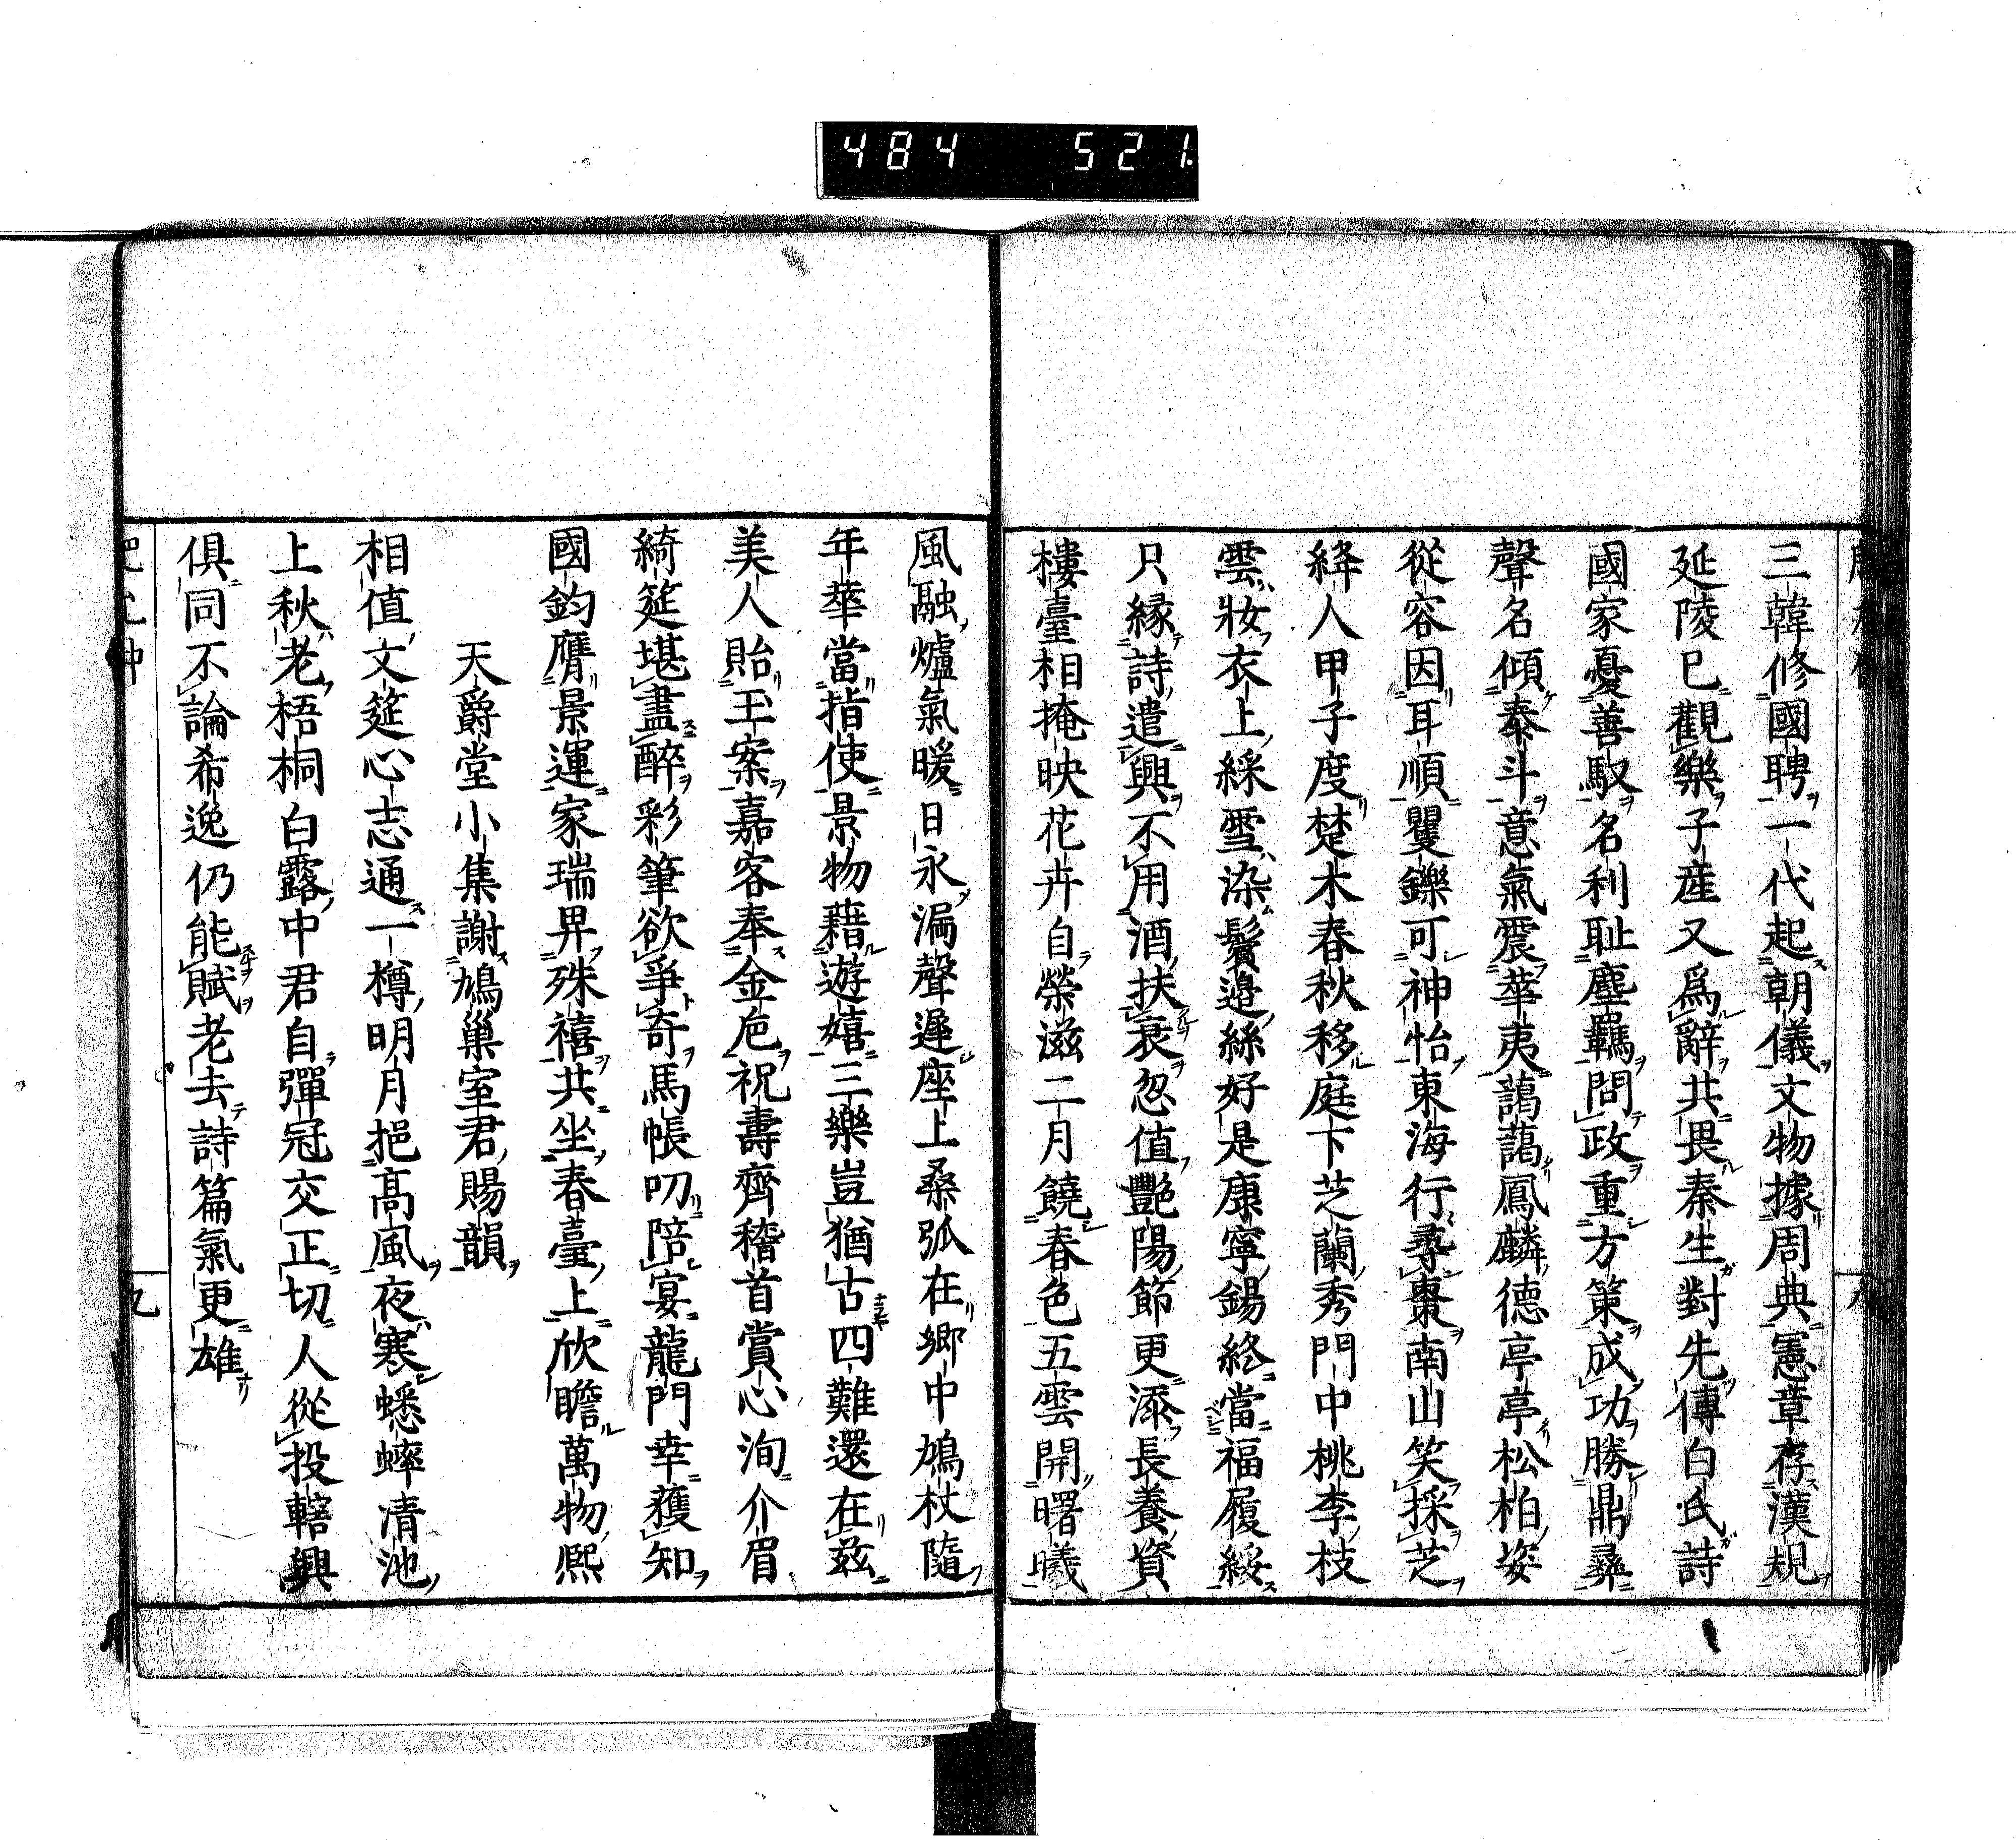 484 521.
三韓修國聘一代起朝儀文物據周典憲章存漢規
延陵已觀樂子産又爲辭共畏秦生對先傳白氏詩
國家憂善馭名利耻塵羈問政重方策成功勝鼎彝
聲名傾泰斗意氣震華夷藹藹鳳麟德亭亭松柏姿
從容因耳順矍鑠可神怡東海行尋棗南山笑採芝
絳人甲子度楚木春秋移庭下芝蘭秀門中桃李枝
雲妝衣上綵雪染鬢邉絲好是康寧錫終當福履綏
只縁詩遣興不用酒扶衰忽值艷陽節更添長養資
樓臺相掩映花卉自榮滋二月饒春色五雲開曙曦
風融爐氣暖日永漏聲遲座上桑弧在郷中鳩杖隨
年華當指使景物藉遊嬉三樂豈猶古四難還在茲
美人貽玉案嘉客奉金巵祝壽齊稽首賞心洵介眉
綺筵堪盡醉彩筆欲爭奇馬帳叨陪宴龍門幸獲知
國鈞膺景運家瑞昇殊禧共坐春臺上欣瞻萬物熙
天爵堂小集謝鳩巢室君賜韻
相值文筵心志通一樽明月挹髙風夜寒蟋蟀清池
上秋老梧桐白露中君自彈冠交正切人從投轄興
俱同不論希逸仍能賦老去詩篇氣更雄
九